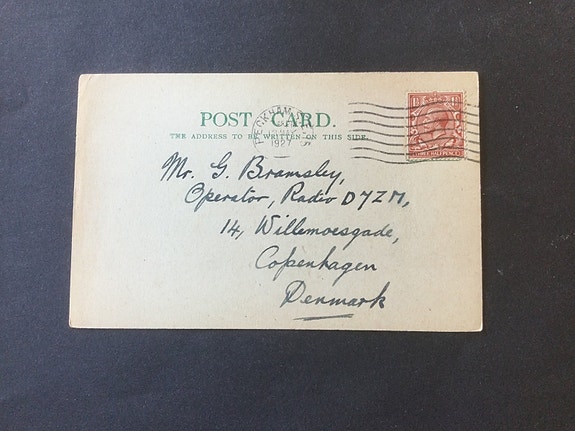 POST CARD.
THE ADDRESS TO BE WRITTEN ON THIS SIDE.
PECKHAM
1927
THREE HALFPENCE
Mr. G. Bramsley,
Operator, Radio D7ZM,
14, Willemoesgade,
Copenhagen
Denmark